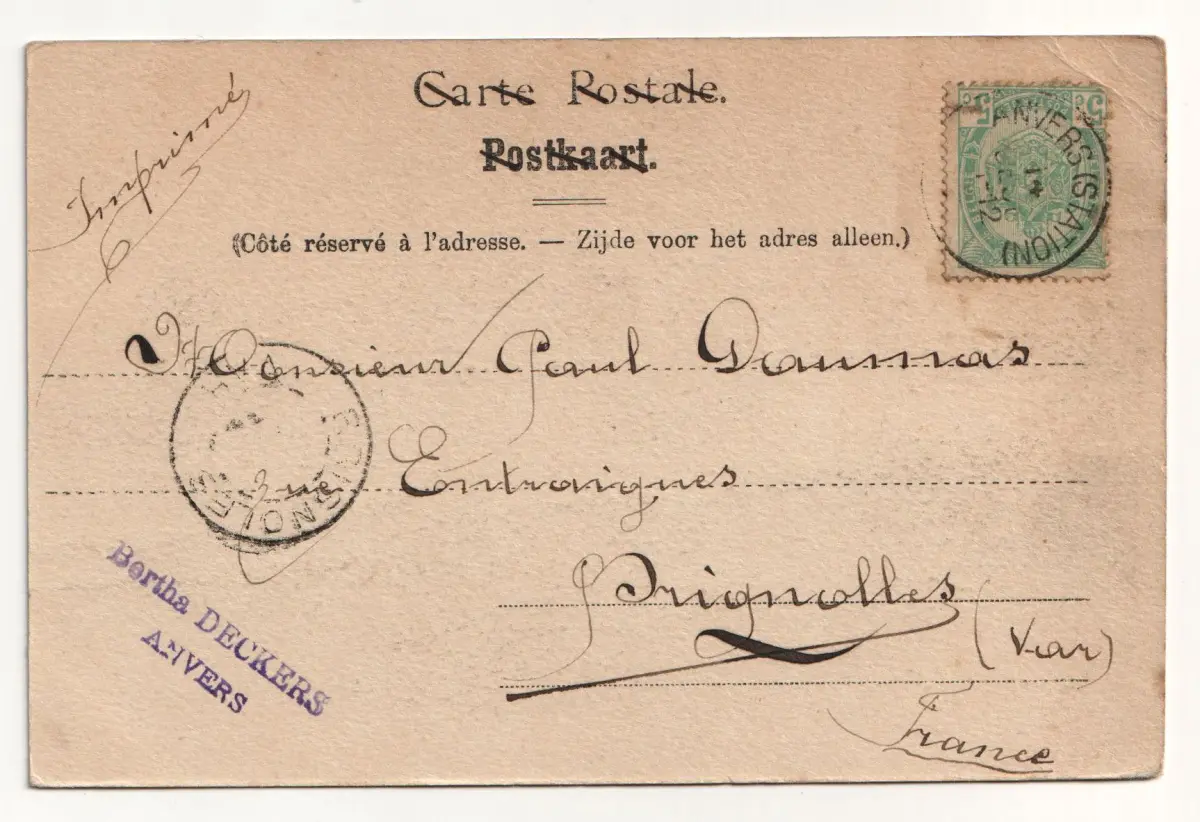 Carte Postale.
Postkaart.
(Côté réservé à l'adresse. — Zijde voor het adres alleen.)
Imprimé
5 5
ANVERS (STATION)
Monsieur Paul Daumas
Entraigues
Brignolles
(Var)
France
BRIGNOLES
Bertha DECKERS
ANVERS